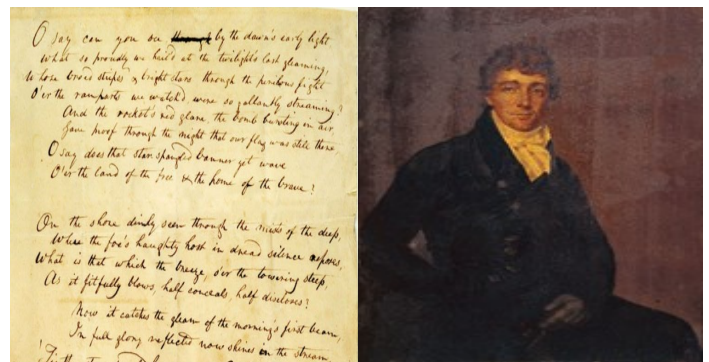 O say can you see by the dawn's early light
What so proudly we hail'd at the twilight's last gleaming,
Whose broad stripes & bright stars through the perilous fight
O'er the ramparts we watch'd were so gallantly streaming?
And the rocket's red glare, the bomb bursting in air,
Gave proof through the night that our flag was still there
O say does that star-spangled banner yet wave
O'er the land of the free & the home of the brave?
On the shore dimly seen through the mists of the deep,
Where the foe's haughty host in dread silence reposes,
What is that which the breeze, o'er the towering steep,
As it fitfully blows, half conceals, half discloses?
Now it catches the gleam of the morning's first beam,
In full glory reflected now shines in the stream